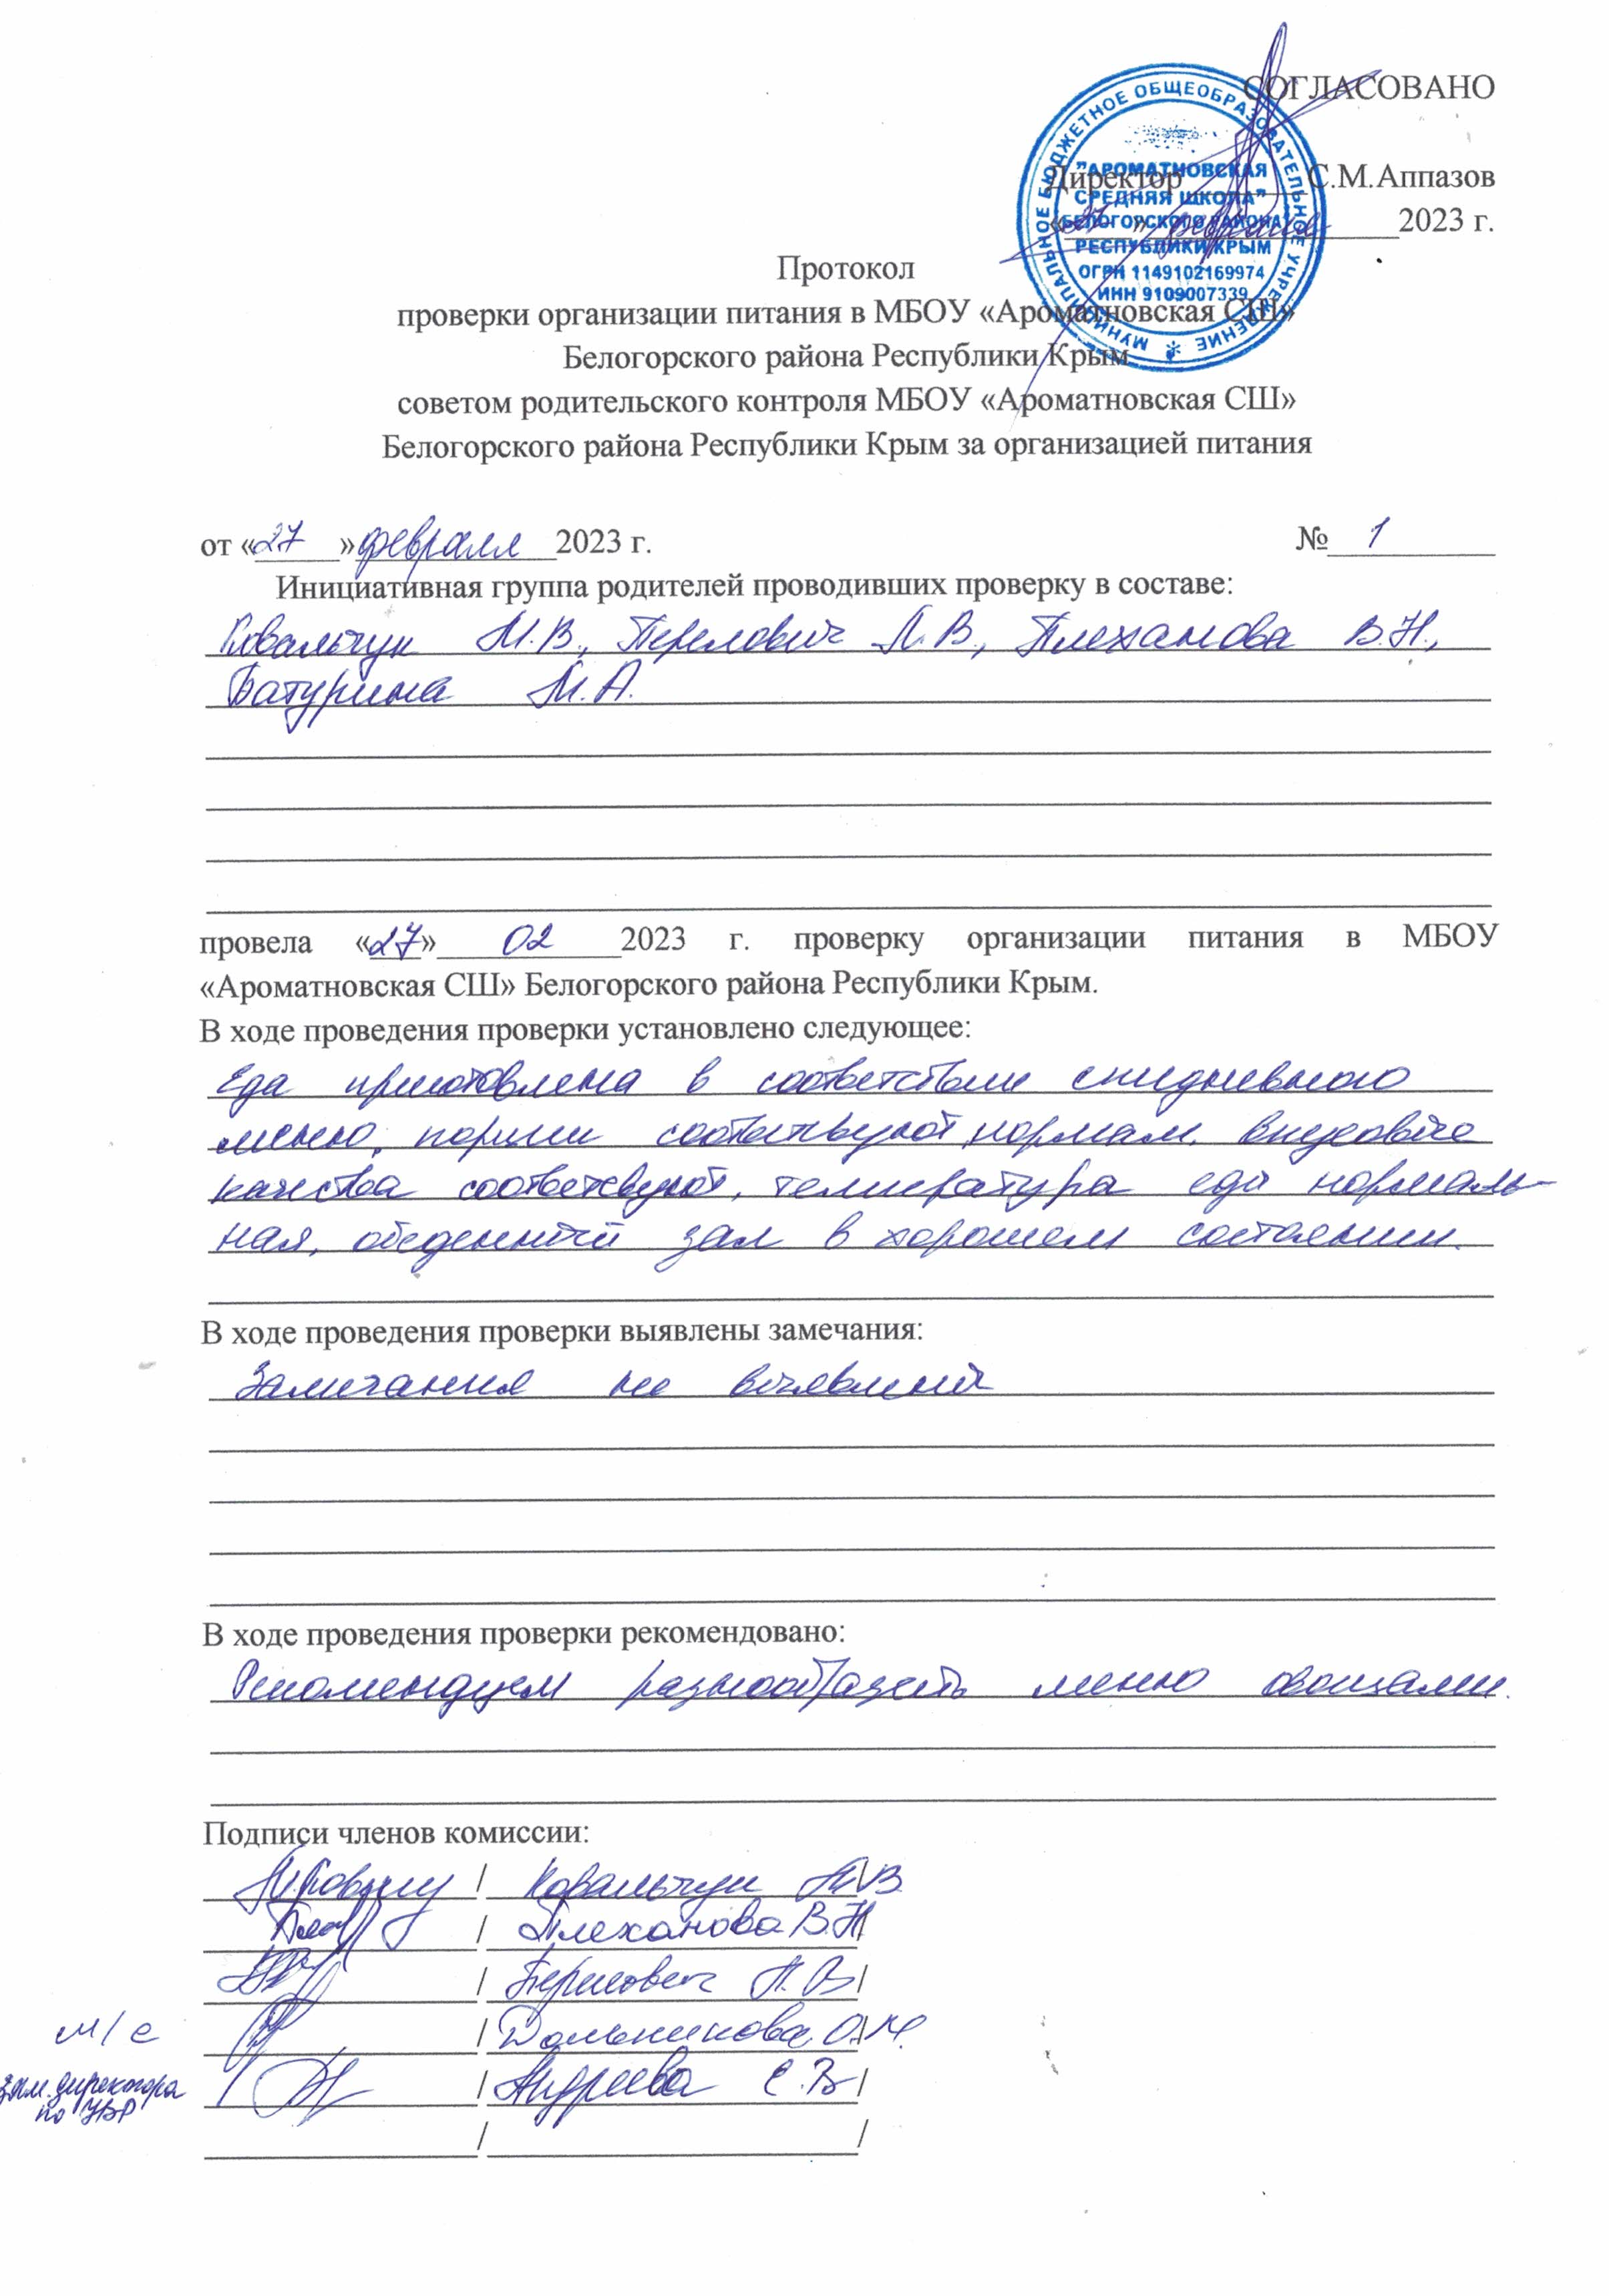 СОГЛАСОВАНО
Директор С.М.Аппазов
«27» февраля 2023 г.
МУНИЦИПАЛЬНОЕ БЮДЖЕТНОЕ ОБЩЕОБРАЗОВАТЕЛЬНОЕ УЧРЕЖДЕНИЕ
"АРОМАТНОВСКАЯ
СРЕДНЯЯ ШКОЛА"
БЕЛОГОРСКОГО РАЙОНА
РЕСПУБЛИКИ КРЫМ
ОГРН 1149102169974
ИНН 9109007339
Протокол
проверки организации питания в МБОУ «Ароматновская СШ»
Белогорского района Республики Крым
советом родительского контроля МБОУ «Ароматновская СШ»
Белогорского района Республики Крым за организацией питания
от «27» февраля 2023 г. № 1
Инициативная группа родителей проводивших проверку в составе:
Ковальчук М.В., Перелович Л.В., Плеханова В.Н.,
Батурина М.А.
провела «27» 02 2023 г. проверку организации питания в МБОУ
«Ароматновская СШ» Белогорского района Республики Крым.
В ходе проведения проверки установлено следующее:
Еда приготовлена в соответствии ежедневного
меню, порции соответствуют нормам. Вкусовые
качества соответсвуют, температура еды нормаль-
ная, обеденный зал в хорошем состоянии.
В ходе проведения проверки выявлены замечания:
Замечания не выявлены
В ходе проведения проверки рекомендовано:
Рекомендуем разнообразить меню овощами.
Подписи членов комиссии:
/ Ковальчук М.В /
/ Плеханова В.Н /
/ Перелович Л.В /
м/с / О.М. /
зам. директора / Андреева Е.В /
по УВР
/ /